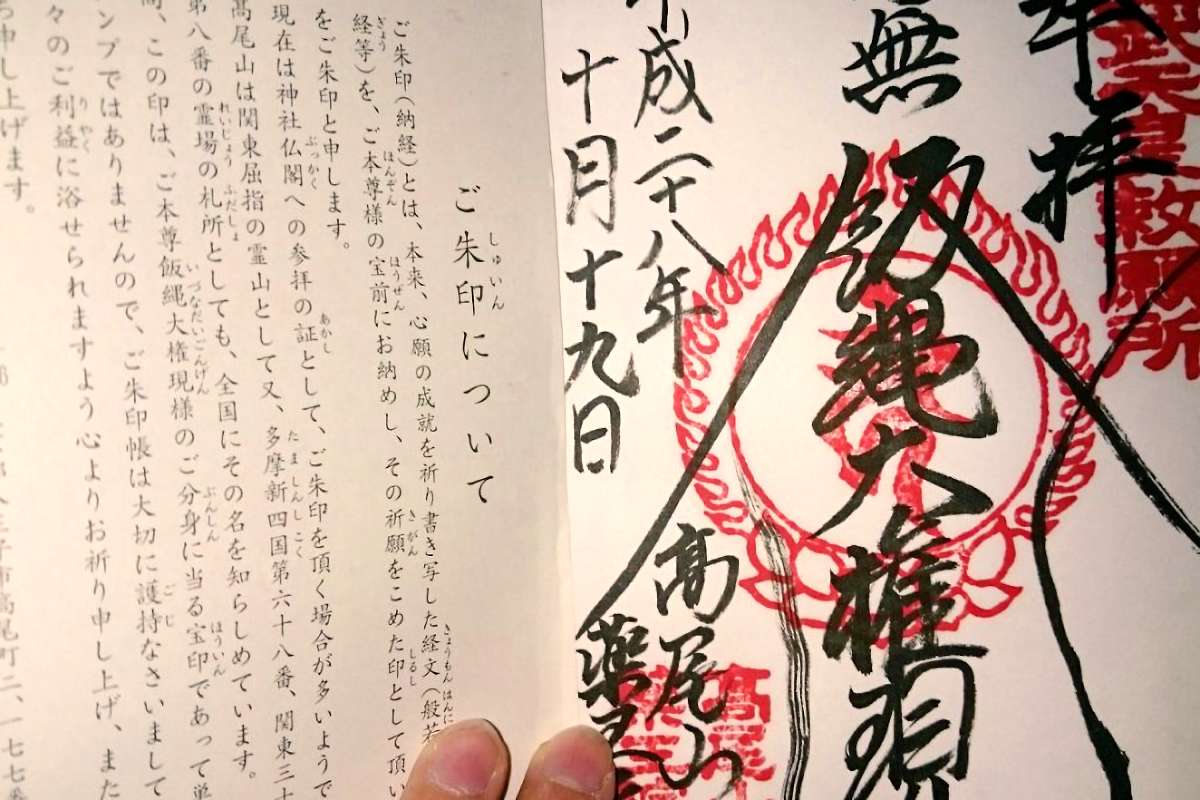 武天皇敕願所
奉拝
無 飯縄大権現
平成二十八年
十月十九日
高尾山
薬王
ご朱印について
ご朱印(納経)とは、本来、心願の成就を祈り書き写した経文(般若
経等)を、ご本尊様の宝前にお納めし、その祈願をこめた印として頂い
をご朱印と申します。
現在は神社仏閣への参拝の証として、ご朱印を頂く場合が多いようで
高尾山は関東屈指の霊山として又、多摩新四国第六十八番、関東三十
第八番の霊場の札所としても、全国にその名を知らしめています。
尚、この印は、ご本尊飯縄大権現様のご分身に当る宝印であって単
ンプではありませんので、ご朱印帳は大切に護持なさいまして
々のご利益に浴せられますよう心よりお祈り申し上げ、また
申し上げます。
八王子市高尾町二、一七七番